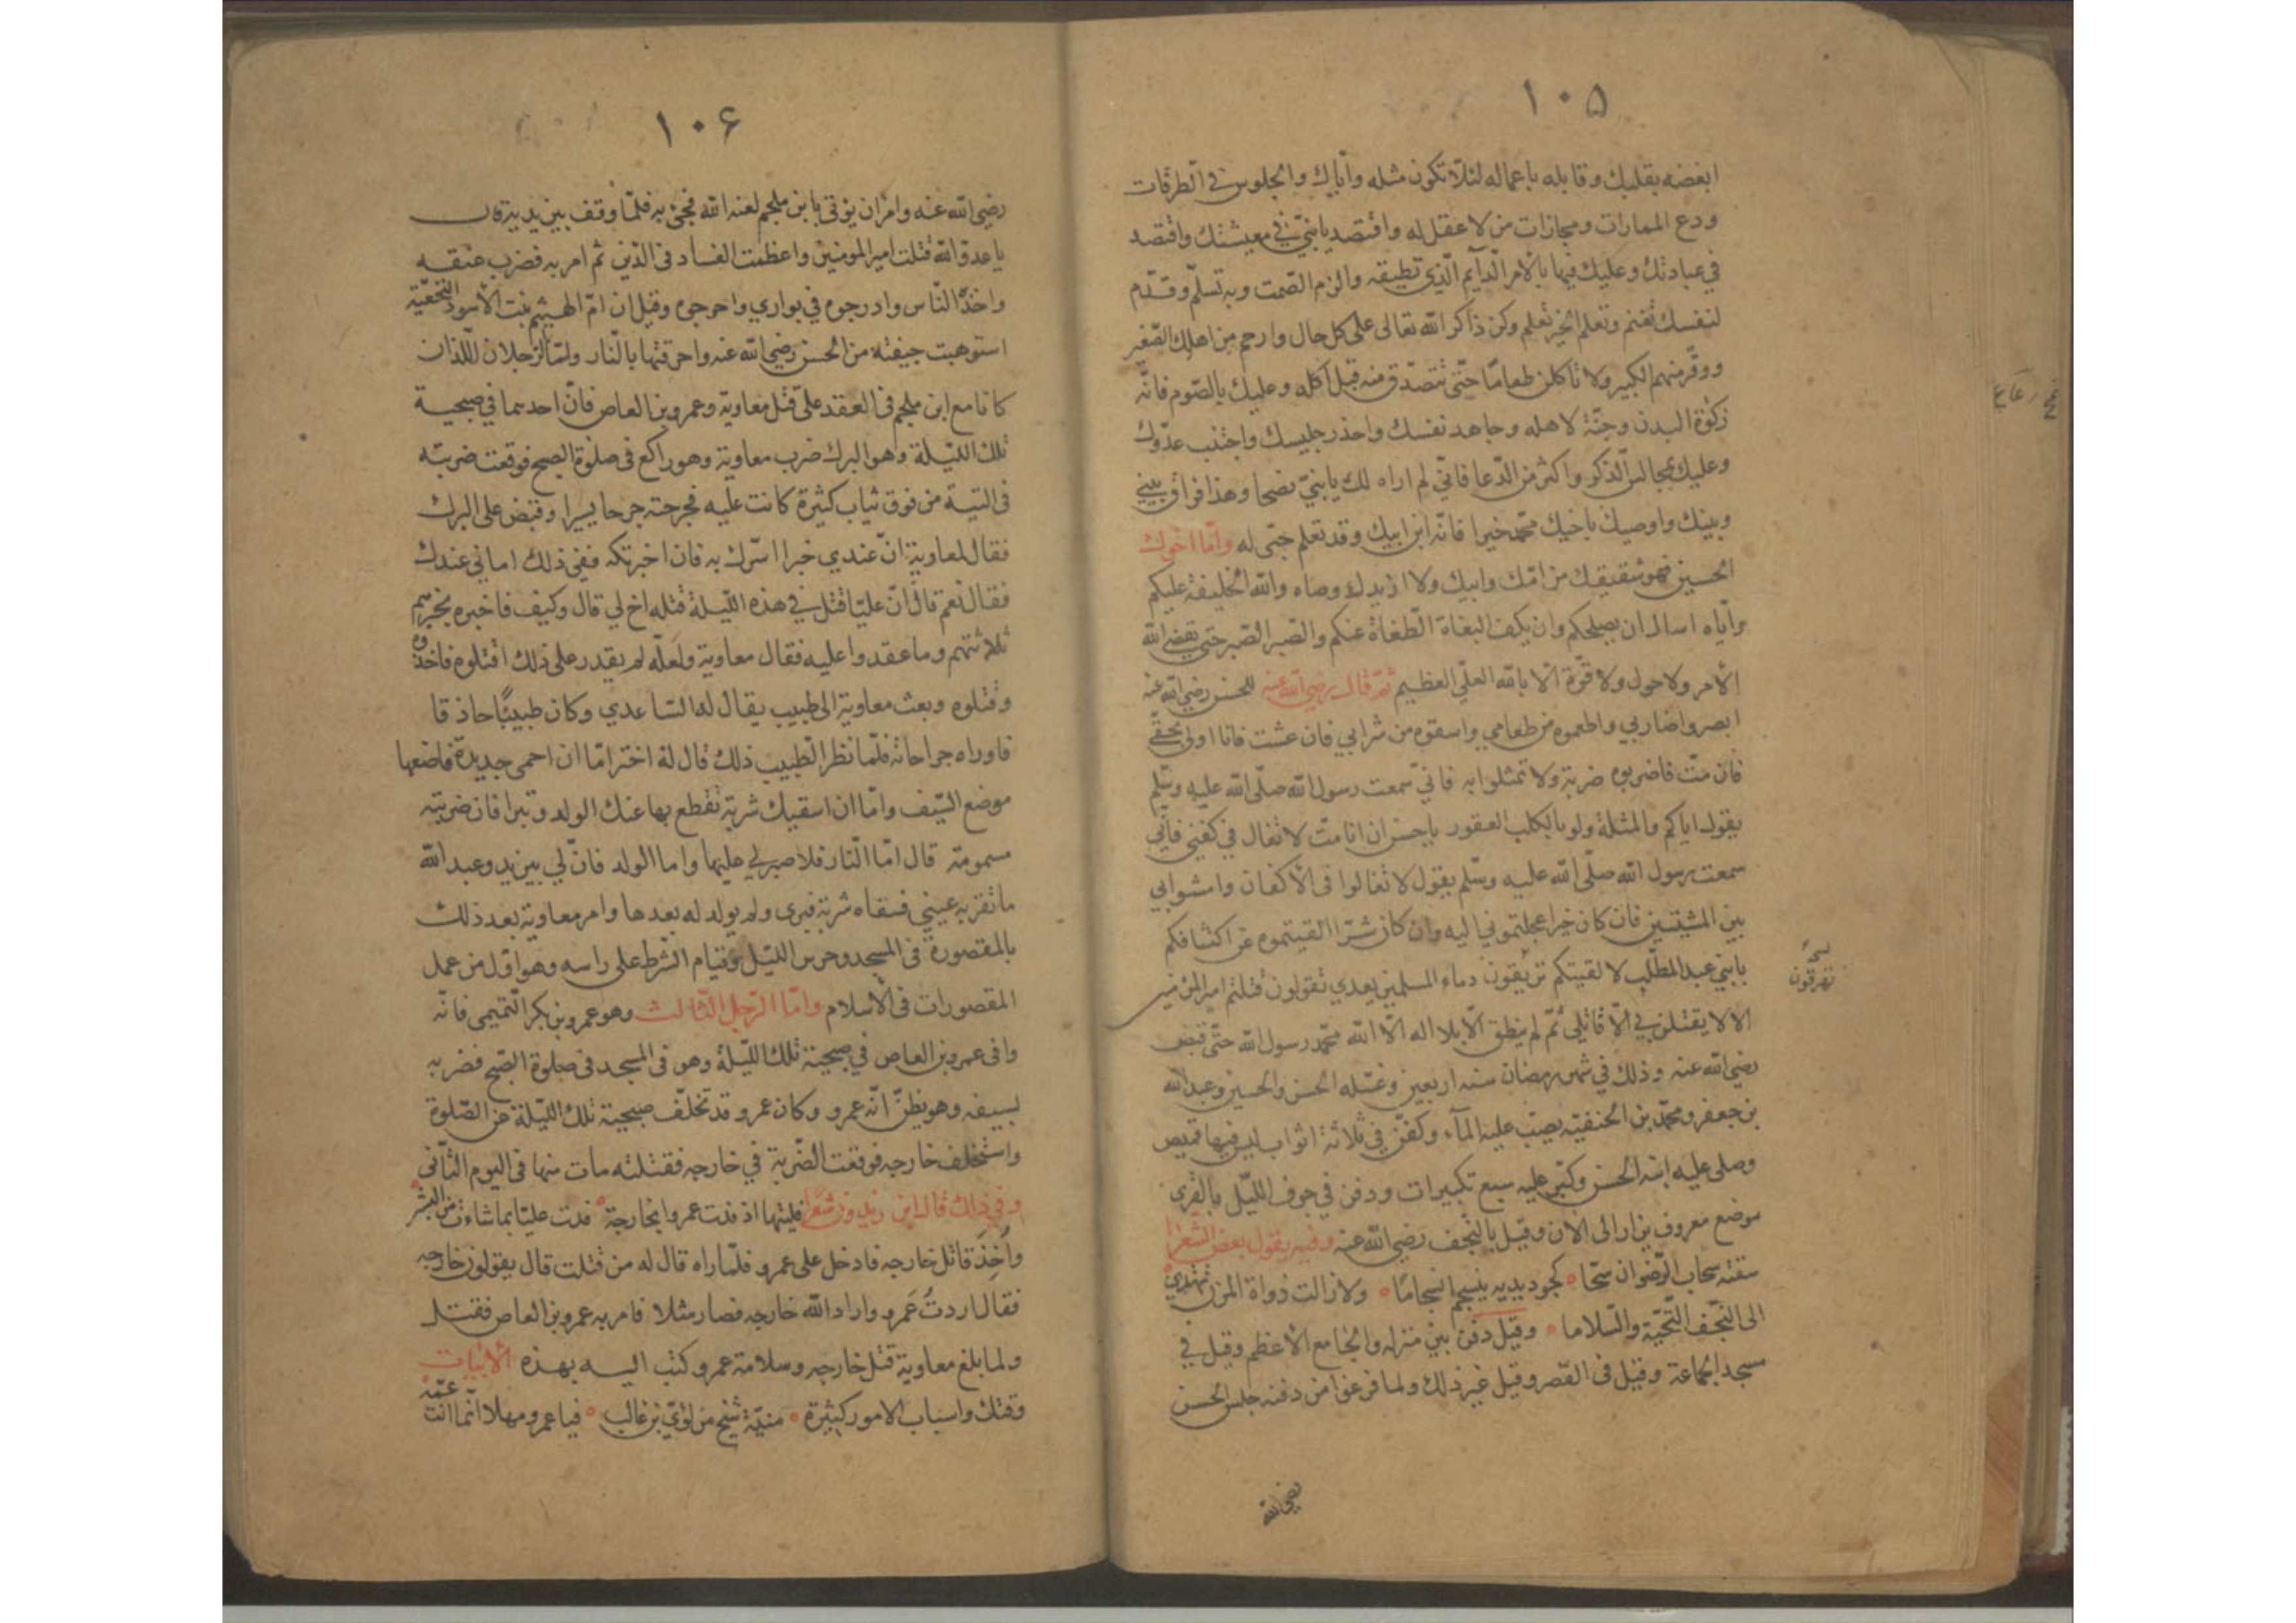 ١٠٥
ابغضه بقلبك وقابله باعماله لئلّا تكون مثله وايّاك والجلوس في الطّرقات
ودع الممارات ومجازات من لا عقل له واقتصد يا بنيّ في معيشتك واقتصد
في عبادتك وعليك فيها بالامر الدّآيم الّذي تطيقه والزم الصّمت وبه تسلم وقدّم
لنفسك تغنم وتعلم الخير تعلم وكن ذاكر الله تعالى على كل حال وارحم من اهلك الصّغير
ووقّر منهم الكبير ولا تاكلن طعامًا حتّى تتصدّق منه قبل اكله وعليك بالصّوم فانّه
زكوة البدن وجنّة لاهله وجاهد نفسك واحذر جليسك واجتنب عدّوك
وعليك بمجالس الّذكر واكثر من الدّعا فانّي لم اراه لك يا بنيّ نصحا وهذا فراق بيني
وبينك واوصيك باخيك محمّد خيرا فانّه ابن ابيك وقد تعلم حبّى له وامّا اخوك
الحسين فهو شقيقك من امّك وابيك ولا ازيدك وصاه والله الخليفة عليكم
وايّاه اسال ان يصلحكم وان يكف البغاة الطّغاة عنكم والصّبر الصّبر حتى يقضي الله
الأمر ولا حول ولا قوّة الّا بالله العليّ العظيم ثمّ قال رضي الله عنه للحسن رضي الله عنه
ابصروا ضاربي واطعموه من طعامي واسقوه من شرابي فان عشت فانا اولى بحقّي
فان متّ فاضربوه ضربة ولا تمثلوا به فانّي سمعت رسول الله صلّى الله عليه وسّلم
يقول اياكم والمثلة ولو بالكلب العقور يا حسن ان انا متّ لا تغال في كفني فانّي
سمعت رسول الله صلّى الله عليه وسّلم يقول لا تغالوا فى الأكفان وامشوا بي
بين المشيتين فان كان خيرا عجلتموني اليه وان كان شرّا القيتموه عن اكتافكم
يا بني عبد المطّلب لا لقيتكم تريقون دماء المسلمين بعدي تقولون قتلتم امير المؤمنين
الا لا يقتلن بي الّا قاتلي ثمّ لم ينطق الّا بلا اله الّا الله محمّد رسول الله حتّى قبض
رضي الله عنه وذلك في شهر رمضان سنه اربعين وغسّله الحسن والحسين وعبد الله
بن جعفر ومحمّد بن الحنفيّه يصبّ عليه المآء وكفّن في ثلاثة اثواب ليس فيها قميص
وصلى عليه ابنه الحسن وكبّر عليه سبع تكبيرات ودفن في جوف اللّيل بالغري
موضع معروف يزار الى الان وقيل بالنّجف رضي الله عنه وفيه يقول بعض الشّعرا
سقته سحاب الرّضوان سحّا كجود يديه ينسجم انسجامًا ولا زالت رواة المزن تهدي
الى النّجف التّحيّة والسّلاما وقيل دفن بين منزله والجامع الأعظم وقيل في
مسجد الجماعة وقيل فى القصر وقيل غير ذلك ولما فرغوا من دفنه جلس الحسن
رضي الله
تهرقون
١٠۶
رضي الله عنه وامر ان يؤتى بابن ملجم لعنه الله فجئ به فلمّا وقف بين يديه قال
يا عدوّ الله قتلت امير المومنين واعظمت الفساد فى الدّين ثم امر به فضرب عنقه
واخذّ النّاس وادرجوه في بواري واحرجوه وقيل ان امّ الهيثم بنت الأسود النّخعيّة
استوهبت جيفته من الحسن رضي الله عنه واحرقتها بالنّار ولمّا الرّجلان اللّذان
كانا مع ابن ملجم فى العقد على قتل معاويّة وعمرو بن العاص فانّ احدهما في صبحية
تلك اللّيلة وهو البرك ضرب معاوية وهو راكع فى صلوة الصبح فوقعت ضربته
فى التية من فوق ثياب كثيرة كانت عليه فجرحته جرحا يسيرا وقبض على البرك
فقال لمعاوية انّ عندي خبرا اسّرك به فان اخبرتكه ففي ذلك اماني عندك
فقال نعم قال انّ عليّا قتل في هذه اللّيلة قتله اخ لي قال وكيف فاخبره بخبرهم
ثلاثتهم وما عقدوا عليه فقال معاوية ولعلّه لم يقدر على ذلك اقتلوه فاخذوه
وقتلوه وبعث معاوية الى طبيب يقال له السّاعدي وكان طبيبًا حاذقا
فاوراه جراحاته فلمّا نظر الطّبيب ذلك قال له اختر امّا ان احمى حديدة فاضعها
موضع السّيف وامّا ان اسقيك شربة تقطع بها عنك الولد وتبرا فان ضربته
مسمومة قال امّا النّار فلا صبر لي عليها واما الولد فانّ لي بيزيد وعبد الله
ما تقر به عيني فسقاه شربة فبرى ولم يولد له بعدها وامر معاوية بعد ذلك
بالمقصورة فى المسجد وحرس اللّيل وقيام الشّرط على راسه وهو اوّل من عمل
المقصورات فى الأسلام وامّا الرّجل الثّالث وهو عمرو بن بكر التّميمى فانّه
وافى عمرو بن العاص في صبحية تلك اللّيلة وهو فى المسجد فى صلوة الصّبح فضربه
بسيفه وهو يظنّ انّه عمرو وكان عمرو قد تخلّف صبيحية تلك اللّيلة عن الصّلوة
واستخلف خارجه فوقعت الضّربة في خارجه فقتلته مات منها فى اليوم الثّانى
وفي ذلك قال ابن زيدون شعرًا فليتها اذ فدت عمروا بخارجة فدت عليّا بما شاءت من البشر
وأُخِذَ قاتل خارجه فادخل على عمرو فلمّا راه قال له من قتلت قال يقولون خارجه
فقال اردتُ عَمرو واراد الله خارجه فصار مثلا فامر به عمرو بن العاص فقتل
ولما بلغ معاوية قتل خارجه وسلامة عمرو كتب اليه بهذه الأبيات
وقتك واسباب الامور كثيرة منيّة شيخ من لؤيّ بن غالب فيا عمرو مهلا انّما انت عمّه